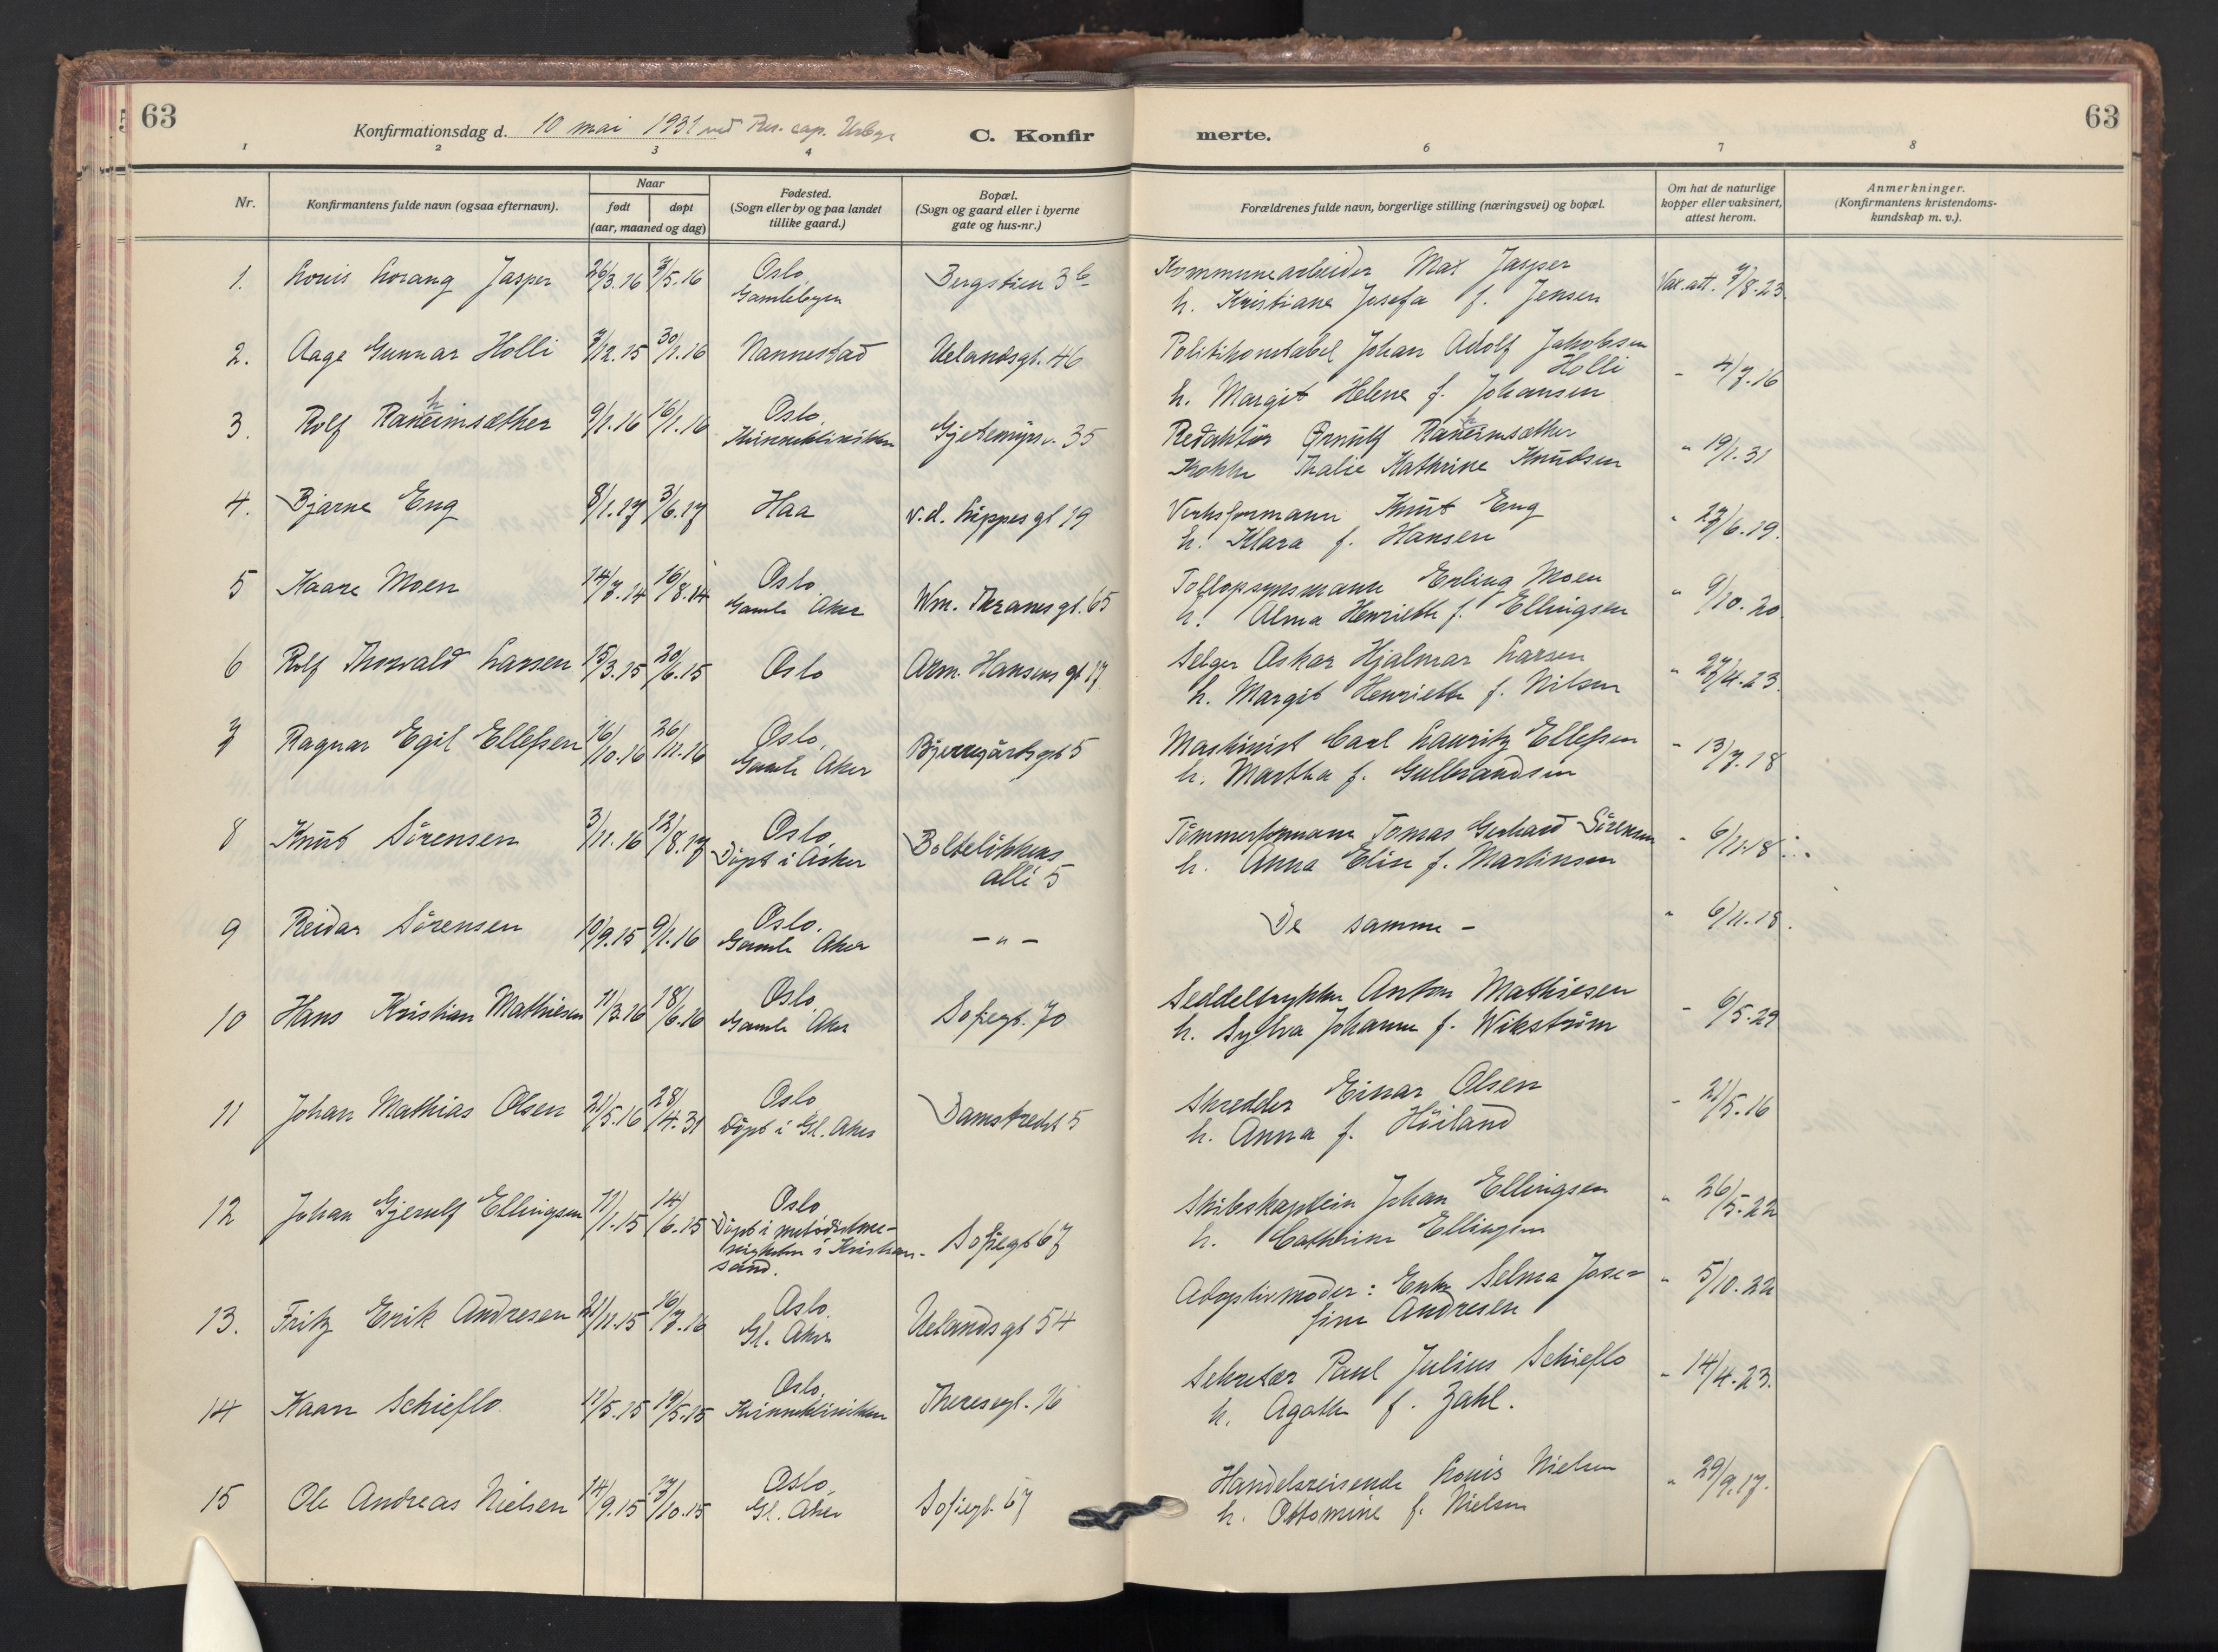 63
Konfirmationsdag d. 10 mai 1931 ved Res. cap.
C. Konfir
merte.
63
1 2 3 4 6 7 8
Nr.
Konfirmantens fulde navn (ogsaa efternavn).
Naar
født døpt
(aar, maaned og dag)
Fødested.
(Sogn eller by og paa landet
tillike gaard.)
Bopæl.
(Sogn og gaard eller i byerne
gate og hus-nr.)
Forældrenes fulde navn, borgerlige stilling (næringsvei) og bopæl.
Om hat de naturlige
kopper eller vaksinert,
attest herom.
Anmerkninger.
(Konfirmantens kristendoms-
kundskap m. v.).
1. Louis Lorang Jasper 26/3.16 7/5.16 Oslo, Bergstien 3b Kommunearbeider Max Jasper Vax.att. 7/8.23.
Gamlebyen h. Kristiane Josefa f. Jensen
2. Aage Gunnar Holli 7/12.15 30/1.16 Nannestad Uelandsgt. 46 Politikonstabel Johan Adolf Jakobsen
Holli - 4/7.16
h. Margit Helene f. Johansen
3. Rolf Ranheimsæther 9/1.16 16/1.16 Oslo, Gjetemyrsv. 35 Redaktör Örnulf Ranheimsæther " 19/1.31
Kvinneklinikken Kokke Thalie Kathrine Knudsen
4. Bjarne Eng 8/1.17 3/6.17 Haa v.d. Lippesgt 19 Verksformann Knut Eng " 27/6.19.
h. Klara f. Hansen
5 Kaare Moen 14/7.14 16/8.14 Oslo, Wm. Thranesgt. 65 Tollopsynsmann Erling Moen " 9/10.20.
Gamle Aker h. Alma Henriette f. Ellingsen
6 Rolf Thorvald Larsen 15/3.15 20/6.15 Oslo Arm. Hansens gt 17 Selger Oskar Hjalmar Larsen " 27/4.23.
h. Margit Henriette f. Nilsen
7 Ragnar Egil Ellefsen 16/10.16 26/11.16 Oslo, Bjerregårdsgt 5 Maskinist Carl Lauritz Ellefsen - 13/7.18
Gamle Aker h. Martha f. Gulbrandsen
8 Knut Sörensen 3/11.16 12/8.17 Oslo, Bolteløkkens Tömmerformann Tomas Gerhard Sörensen - 6/11.18
Döpt i Asker alle 5 h. Anna Elise f. Martinsen
9 Reidar Sörensen 10/9.15 9/1.16 Oslo. - " - De samme - " 6/11.18.
Gamle Aker
10 Hans Kristian Mathiesen 11/3.16 18/6.16 Oslo, Sofiegt. 70 Seddeltrykker Anton Mathiesen - 6/5.29
Gamle Aker h. Sylva Johanne f. Wikström
11 Johan Mathias Olsen 21/5.16 28/4.31 Oslo Damstredet 5 Skredder Einar Olsen - 21/5.16
Döpt i Gl. Aker h. Anna f. Höiland
12 Johan Gjerulf Ellingsen 11/1.15 14/6.15 Oslo Sofiegt 67 Skibskaptein Johan Ellingsen " 26/5.22
Döpt i metodistme-
nigheten i Kristian-
sand.
h. Cathrine Ellingsen
13. Fritz Erik Andresen 21/11.15 16/7.16 Oslo, Uelandsgt 54 Adoptivmoder: Enke Selma Jose= " 5/10.22
Gl. Aker fine Andresen
14 Kaare Schieflo 11/5.15 19/5.15 Oslo, Theresegt. 16 Sekretær Paul Julius Schieflo " 14/4.23.
Kvinneklinikken h. Agathe f. Zahl.
15 Ole Andreas Nielsen 14/9.15 17/10.15 Oslo, Sofiegt. 67 Handelsreisende Louis Nielsen " 29/9.17.
Gl. Aker h. Ottomine f. Nielsen